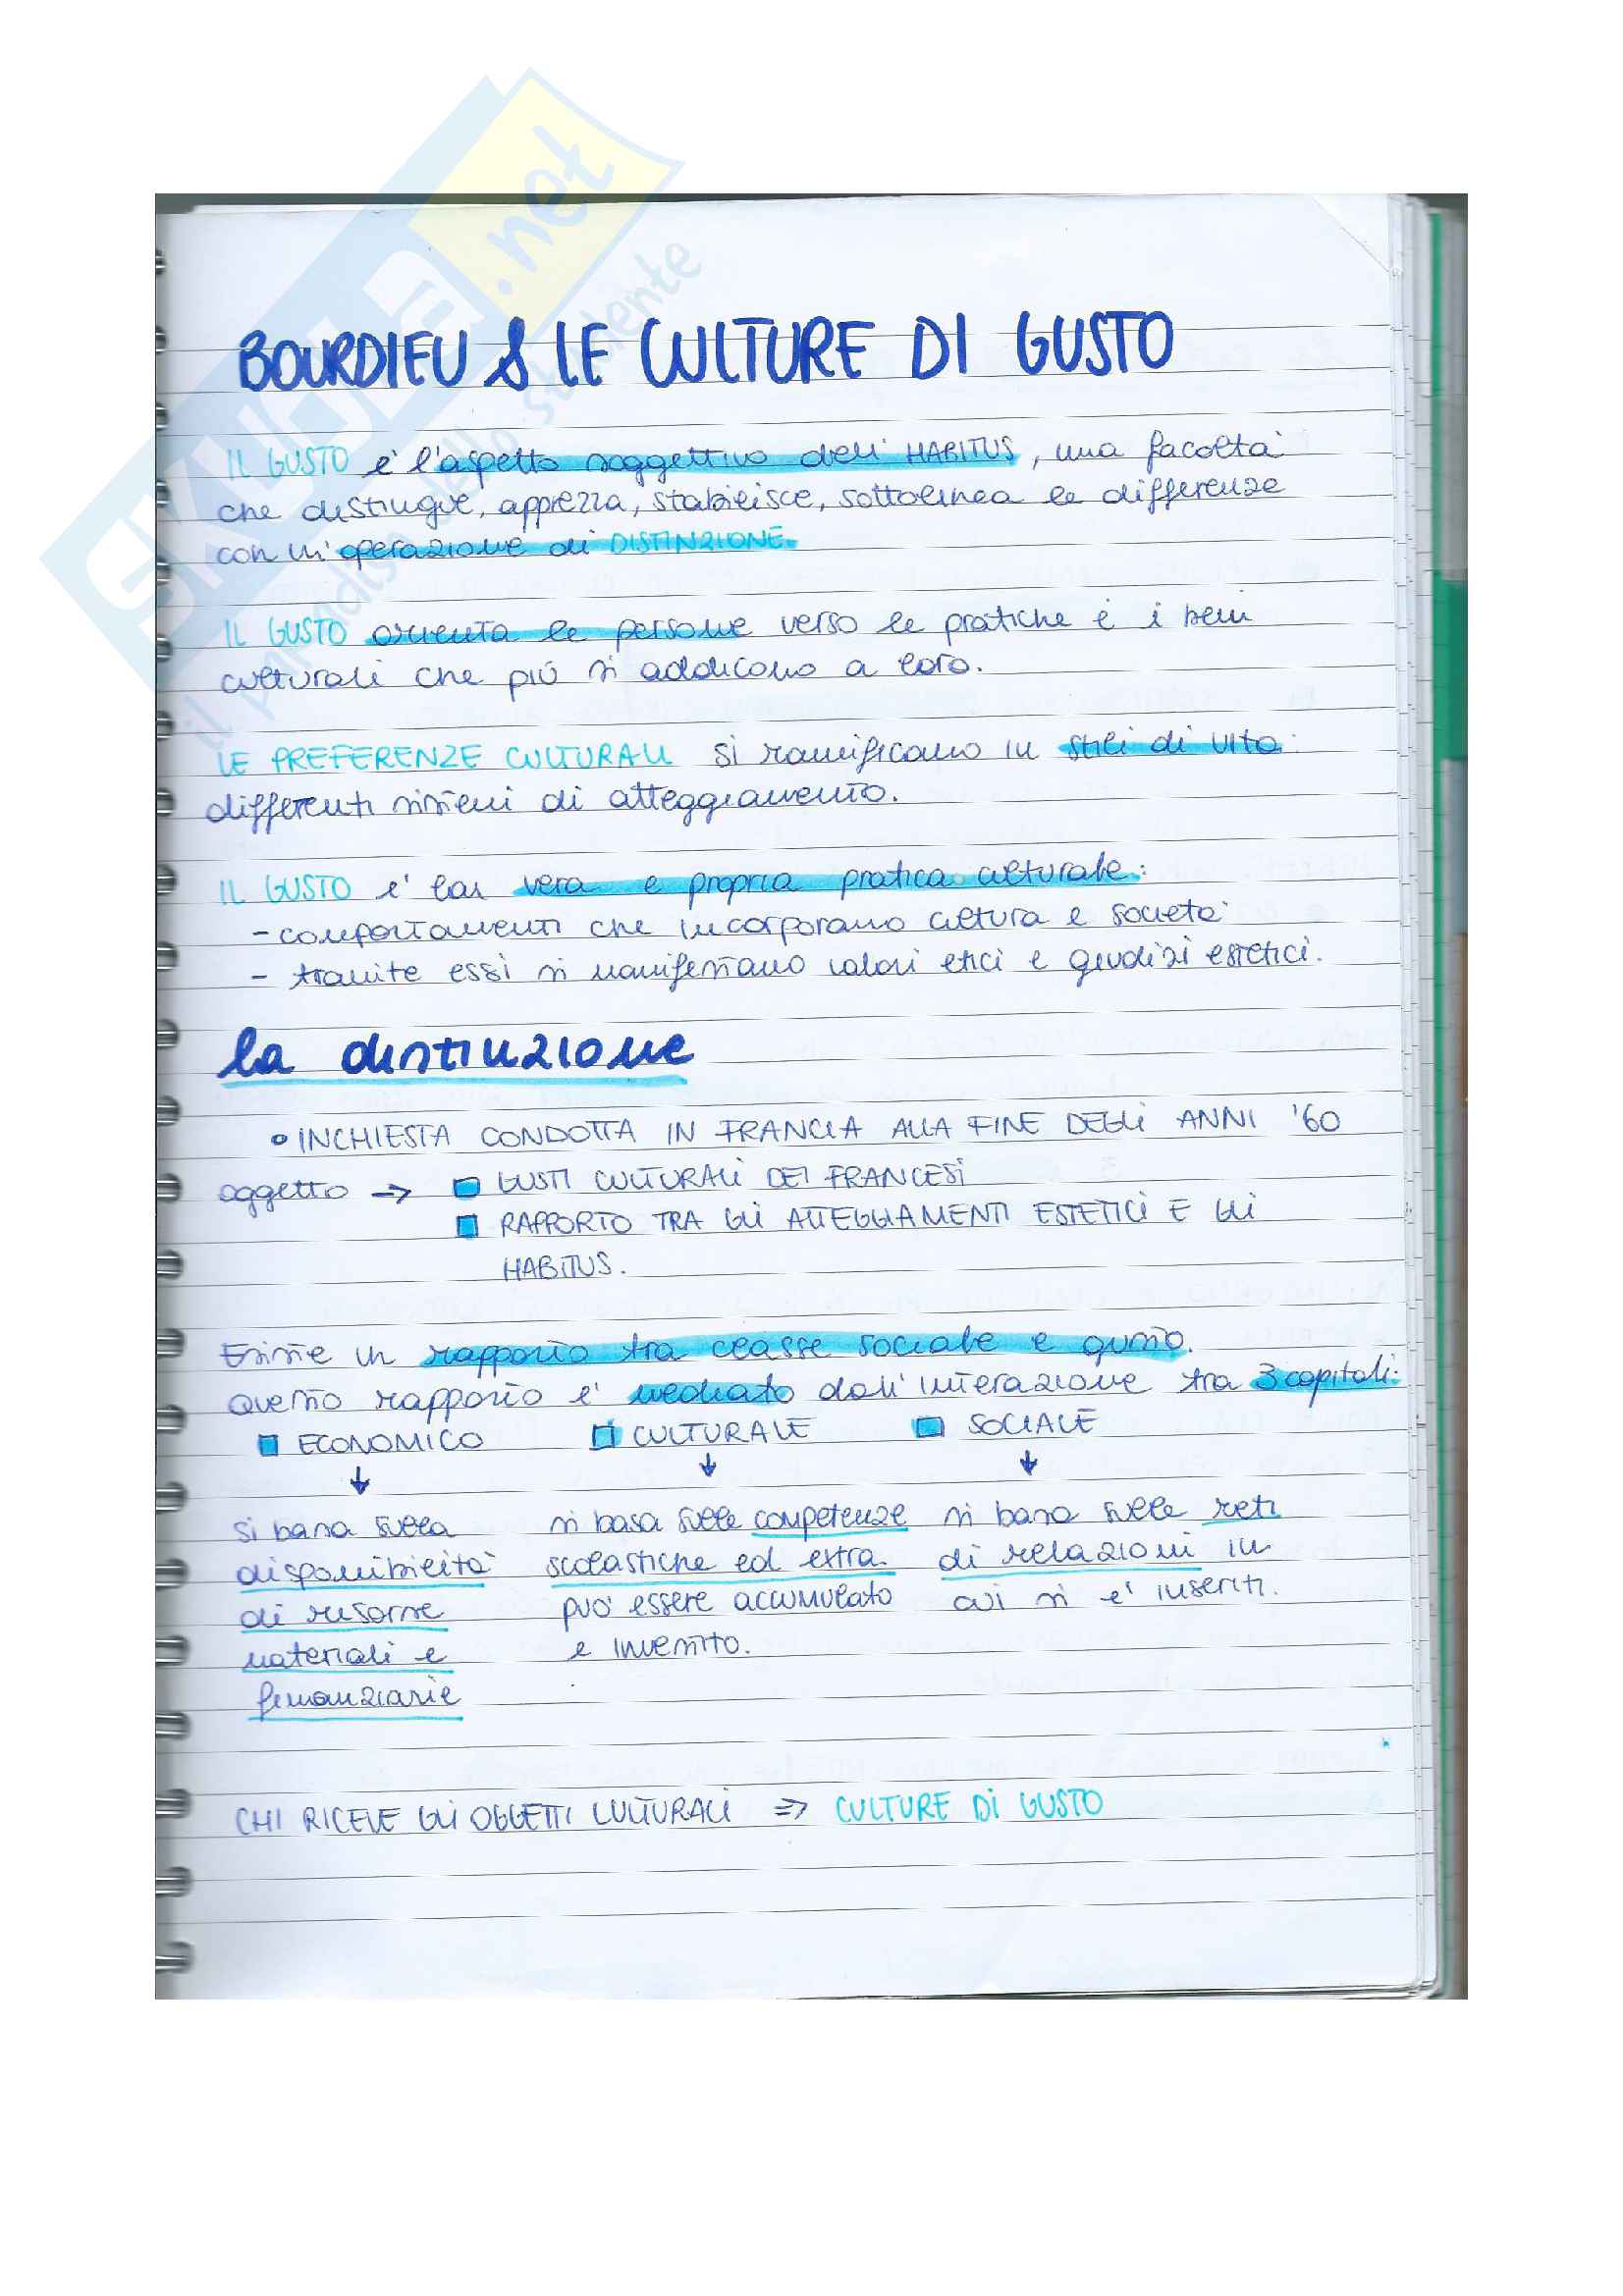 SKUOLA.net
il paradiso dello studente
BOURDIEU & LE CULTURE DI GUSTO
IL GUSTO e' l'aspetto soggettivo dell'HABITUS, una facoltà
che distingue, apprezza, stabilisce, sottolinea le differenze
con un'operazione di DISTINZIONE.
IL GUSTO orienta le persone verso le pratiche e i beni
culturali che più si addicono a loro.
LE PREFERENZE CULTURALI si ramificano in stili di vita:
differenti sistemi di atteggiamento.
IL GUSTO e' vera e propria pratica culturale:
- comportamenti che incorporano cultura e società
- tramite essi si manifestano valori etici e giudizi estetici.
la distinzione
• INCHIESTA CONDOTTA IN FRANCIA ALLA FINE DEGLI ANNI '60
oggetto → GUSTI CULTURALI DEI FRANCESI
RAPPORTO TRA GLI ATTEGGIAMENTI ESTETICI E GLI
HABITUS.
Esiste un rapporto tra classe sociale e gusto.
questo rapporto e' mediato dall'interazione tra 3 capitali:
ECONOMICO CULTURALE SOCIALE
↓ ↓ ↓
si basa sulla si basa sulle competenze si basa sulle reti
disponibilità scolastiche ed extra. di relazioni in
di risorse può essere accumulato cui si e' inseriti.
materiali e e investito.
finanziarie
CHI RICEVE GLI OGGETTI CULTURALI ⇒ CULTURE DI GUSTO